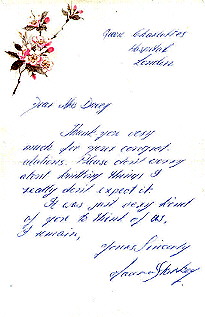 Queen Charlottes
Hospital
London
Dear Mrs Davey
Thank you very
much for your congrat
ulations. Please don't worry
about knitting things I
really don't expect it.
It was just very kind
of you to think of us.
I remain,
Yours Sincerely